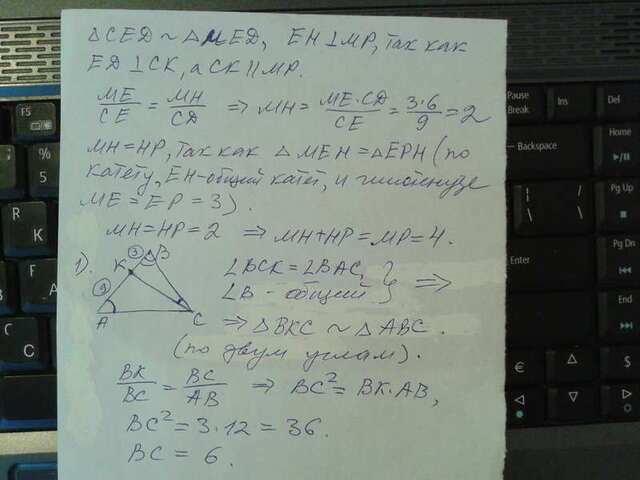 △CED ~ △MED, EH ⊥ MP, так как
ED ⊥ CK, а CK || MP.
ME/CE = MH/CD ⇒ MH = ME·CD/CE = 3·6/9 = 2
MH = HP, так как △MEH = △EPH (по
катету, EH - общий катет, и гипотенузе
ME = EP = 3).
MH = HP = 2 ⇒ MH + HP = MP = 4.
1). K 3 B 9 A C
∠BCK = ∠BAC, }
∠B - общий } ⇒
⇒ △BKC ~ △ABC.
(по двум углам).
BK/BC = BC/AB ⇒ BC² = BK·AB,
BC² = 3·12 = 36.
BC = 6.
F5
%
5
R
F
Pause
Break
Ins
Del
Backspace
Home
Pg Up
Pg Dn
Enter
End
| \
€
$